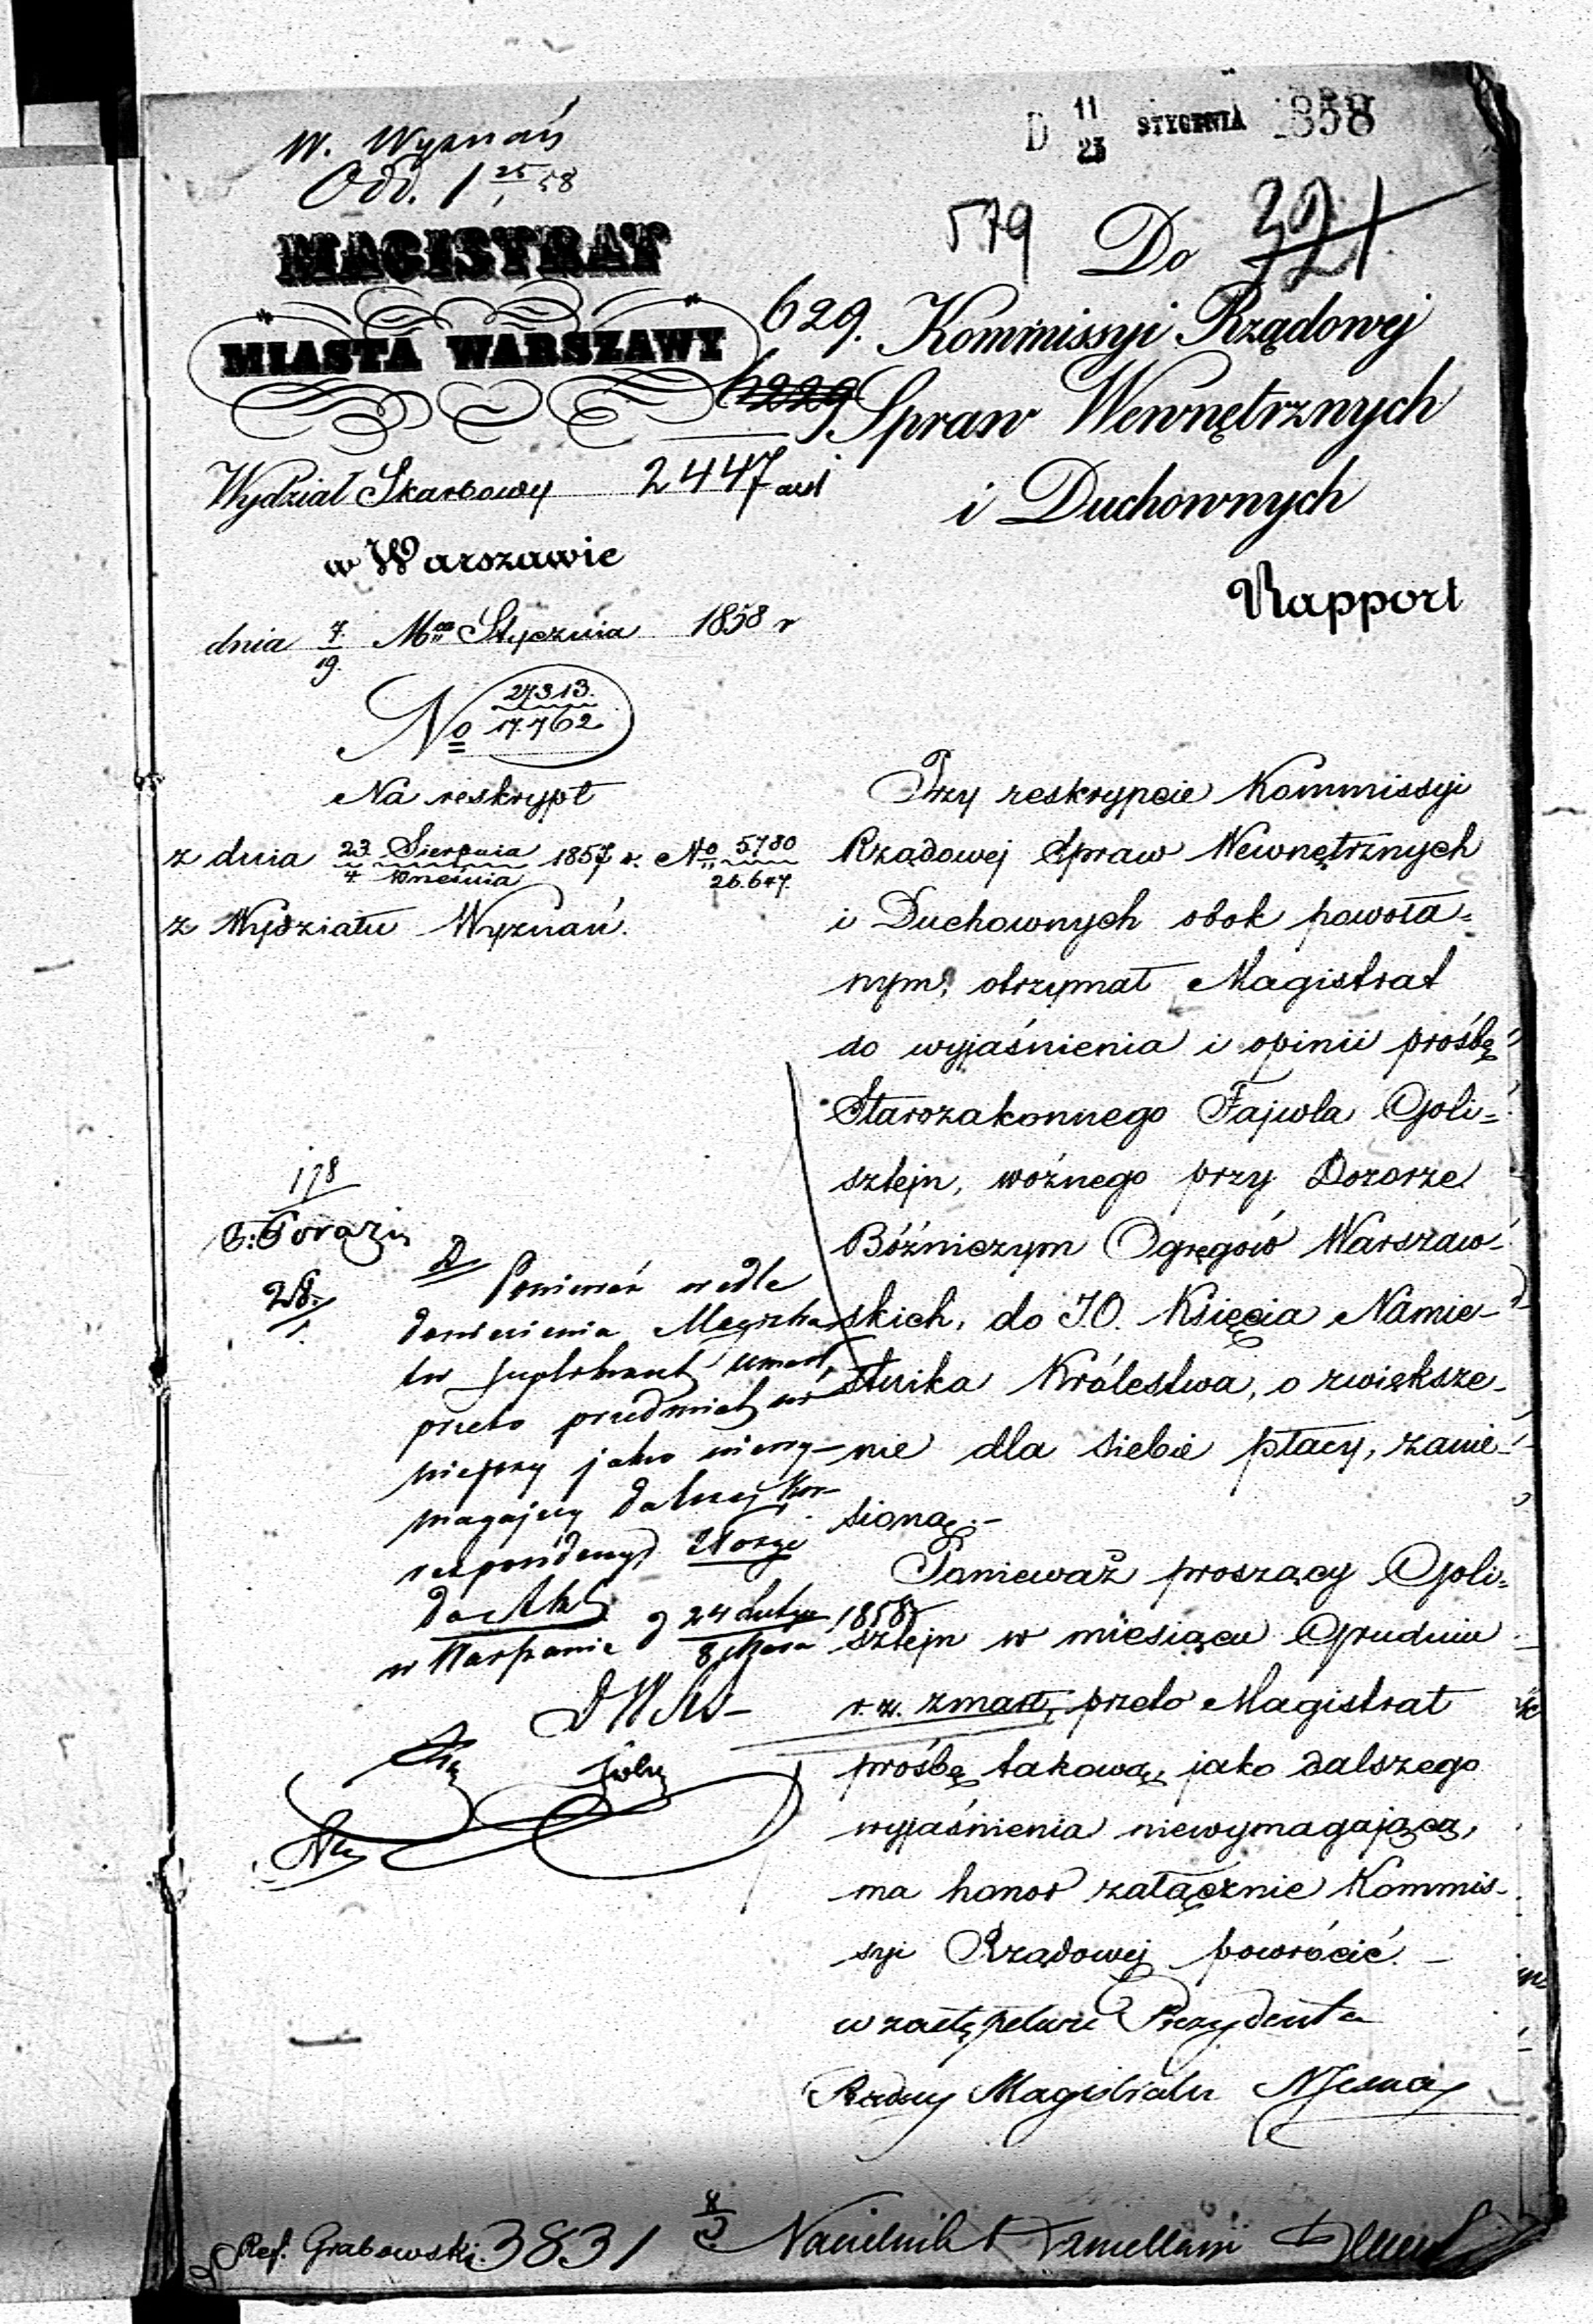 W. Wyznań
Odd. 1 25/1 58
D 11/23 STYCZNIA 1858
579 Do 321
MAGISTRAT
MIASTA WARSZAWY
629. Kommissyi Rządowej
Spraw Wewnętrznych
i Duchownych
Wydział Skarbowy 2447
w Warszawie
Rapport
dnia 7/19. Mca Stycznia 1858 r
No 27313./17.762
Na reskrypt
z dnia 23 Sierpnia/4 Września 1857 r. No 5780/26.647.
z Wydziału Wyznań.
Przy reskrypcie Kommissyi
Rządowej Spraw Wewnętrznych
i Duchownych obok powoła=
nym, otrzymał Magistrat
do wyjaśnienia i opinii prośbę
Starozakonnego Fajwla Goli=
sztejn, woźnego przy Dozorze
Bóźniczym Ogręgów Warszaw-
skich, do JO. Księcia Namie-
stnika Królestwa, o zwiększe-
nie dla siebie płacy, zanie-
sioną.-
Ponieważ proszący Goli=
sztejn w miesiącu Grudniu
r. z. zmarł, przeto Magistrat
prośbę takową, jako dalszego
wyjaśnienia niewymagającą,
ma honor załącznie Kommis-
syi Rządowej powrócić. -
w zastępstwie Prezydenta
Radny Magistratu
178
28/1.
Ponieważ wedle
doniesienia Magistra
tu suplikant umarł,
przeto przedmiot ni
niejszy jako niewy-
magający dalszej kor-
respondencyi złożyć
do Akt
w Warszawie d 24 Lutego/8 Marca 1858 r
Ref. Grabowski. 3831 8/3 Naczelnik Kancellarii